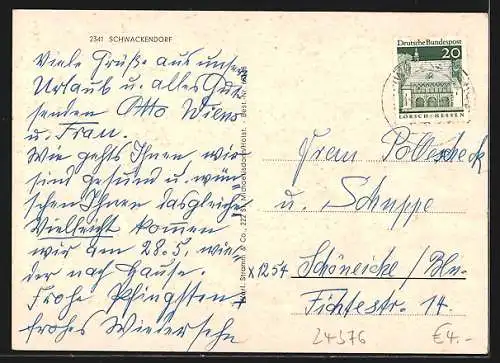 2341 SCHWACKENDORF
Viele Grüße aus unserem
Urlaub u. alles Gute
senden Otto Wiens
u. Frau.
Wie gehts Ihnen, wir
sind gesund u. wün-
schen Ihnen dasgleiche
Vielleicht kommen
wir am 28.5. wie-
der nach Hause.
Frohe Pfingsten
frohes Wiedersehn
Deutsche Bundespost
20
LORSCH/HESSEN
Herrn
u. Schuppe
x 1254 Schöneiche/Bln.
Fichtestr. 14.
24376
€4.-